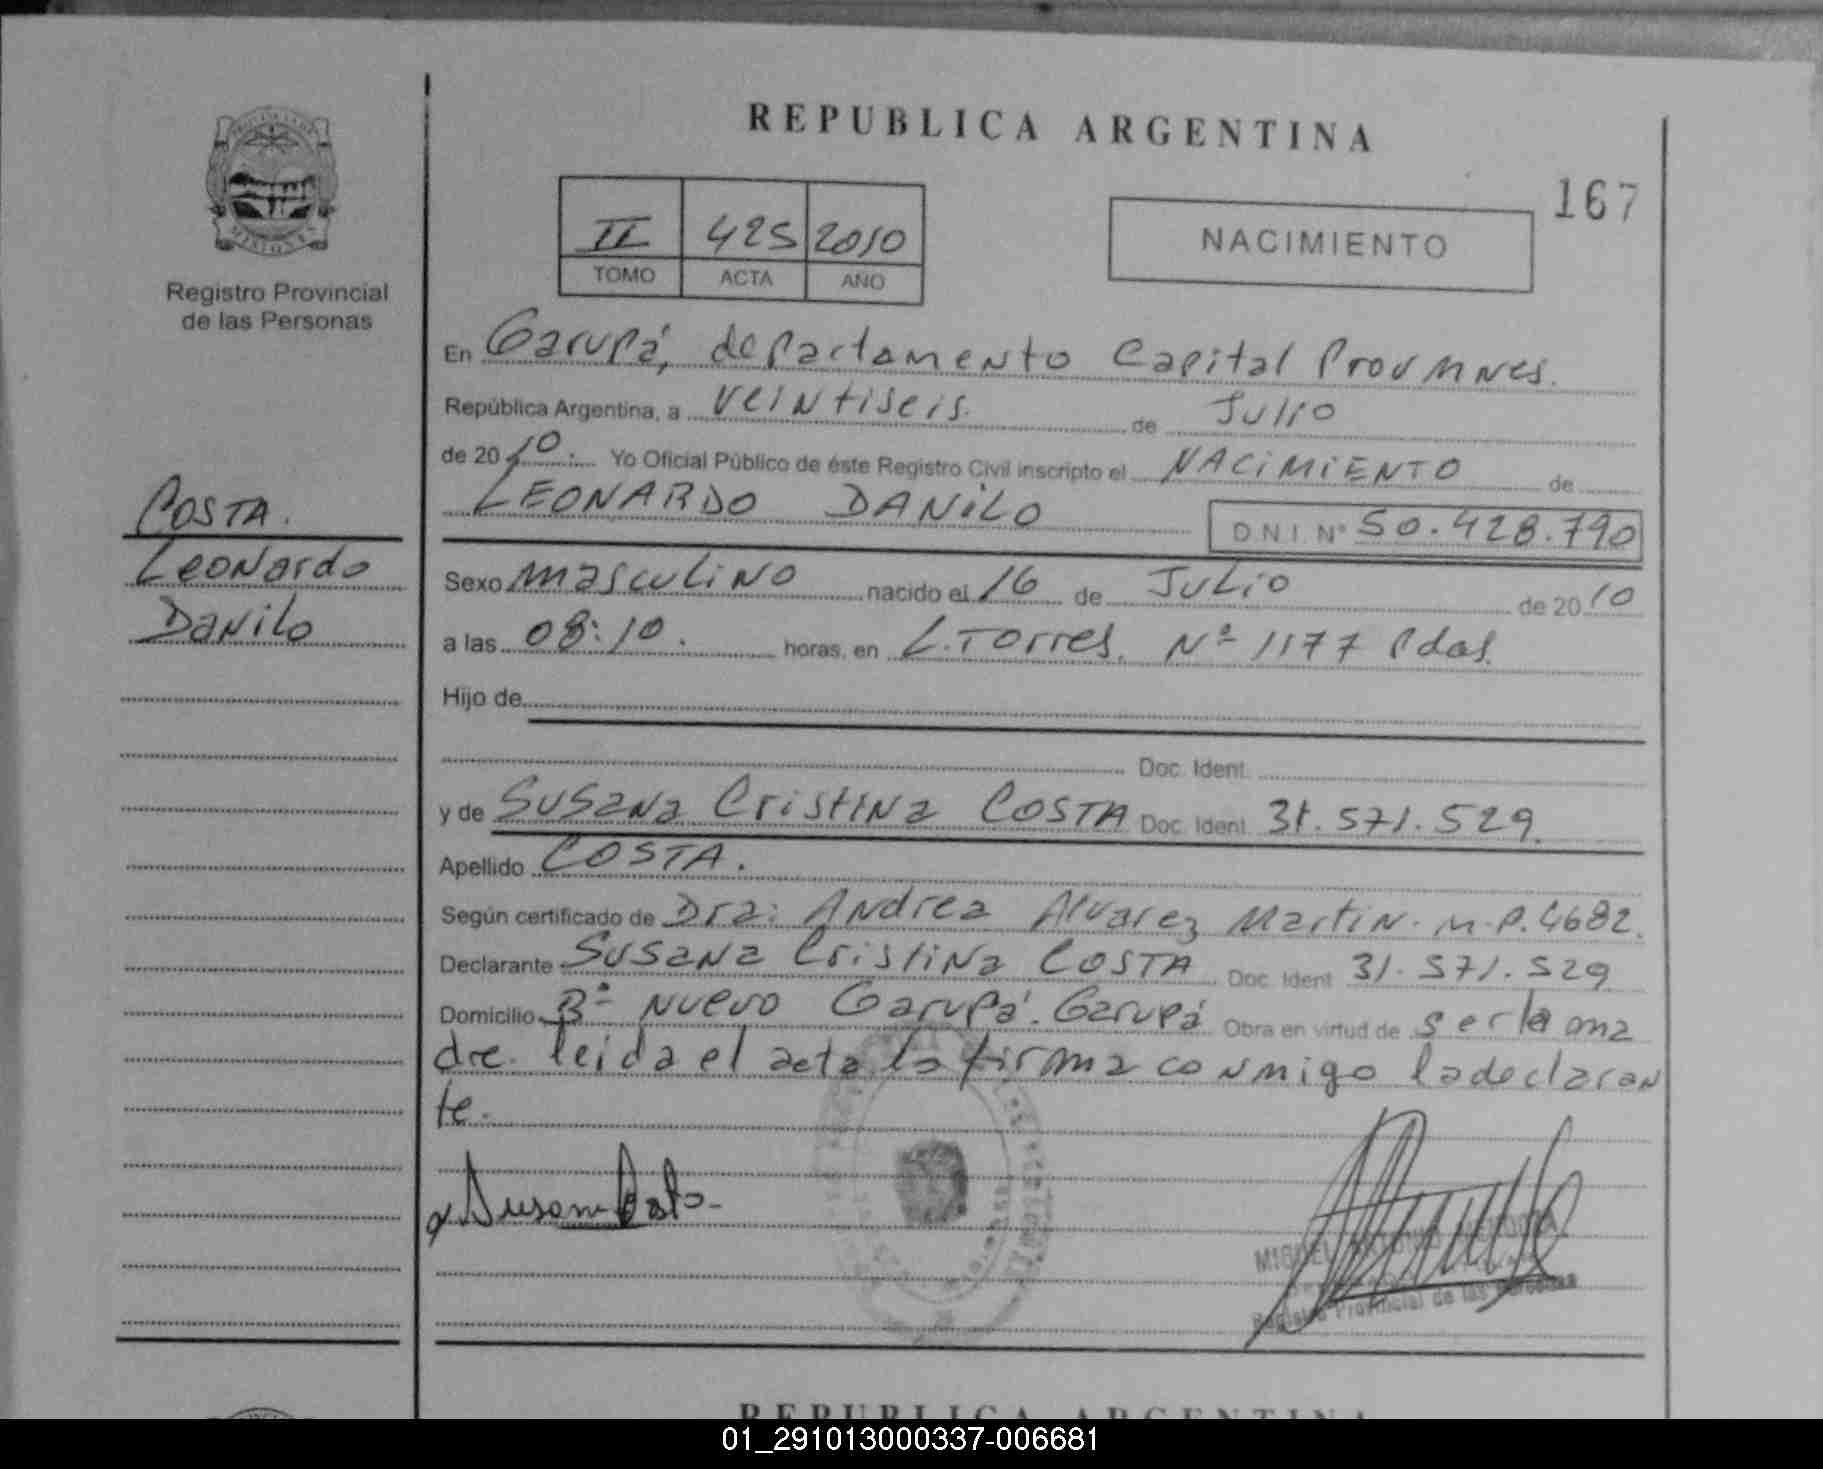 REPUBLICA ARGENTINA
167
PROVINCIA DE
MISIONES
Registro Provincial
de las Personas
II 425 2010
TOMO ACTA AÑO
NACIMIENTO
En Garupá, departamento Capital Prov Mnes.
República Argentina, a veintiseis. de Julio
de 20 10: Yo Oficial Público de éste Registro Civil inscripto el NACIMIENTO de
LEONARDO DANILO D.N.I. Nº 50.428.790
COSTA.
Leonardo
Danilo
Sexo masculino nacido el 16 de JULIO de 20 10
a las 08:10. horas, en L. Torres. Nº 1177 Pdas.
Hijo de
Doc. Ident.
y de Susana Cristina COSTA Doc. Ident. 31.571.529.
Apellido COSTA.
Según certificado de Dra: Andrea Alvarez Martin. M.P. 4682.
Declarante Susana Cristina COSTA Doc. Ident. 31.571.529
Domicilio Bº Nuevo Garupá. Garupá Obra en virtud de ser la ma
dre. leida el acta la firma conmigo la declaran
te.
Susana Costa
MIGUEL
Registro Provincial de las Personas
REPUBLICA ARGENTINA
01_291013000337-006681